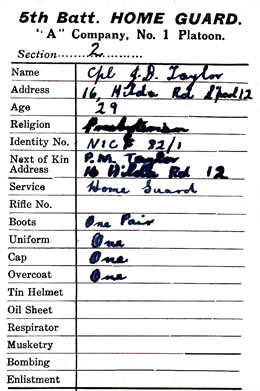 5th Batt. HOME GUARD.
"A" Company, No. 1 Platoon.
Section 2
Name Cpl J.D. Taylor
Address 16, Hilda Rd S'pool 12
Age 29
Religion Presbyterian
Identity No. NIC 82/1
Next of Kin P.M. Taylor
Address 16 Hilda Rd 12
Service Home Guard
Rifle No.
Boots One Pair
Uniform One
Cap One
Overcoat One
Tin Helmet
Oil Sheet
Respirator
Musketry
Bombing
Enlistment